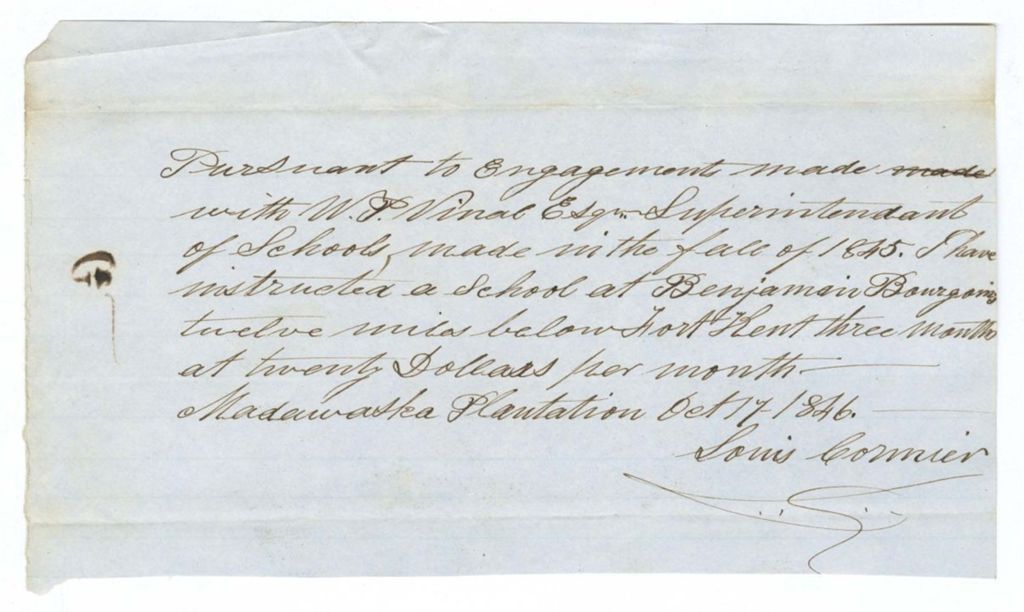 Pursuant to Engagement made made
with W. P. Vinal Esqr. Superintendant
of Schools, made in the fall of 1845. I have
instructed a School at Benjamin Bourgoins
twelve miles below Fort Kent three months
at twenty Dollars per month —
Madawaska Plantation Oct 17 1846. —
Louis Cormier